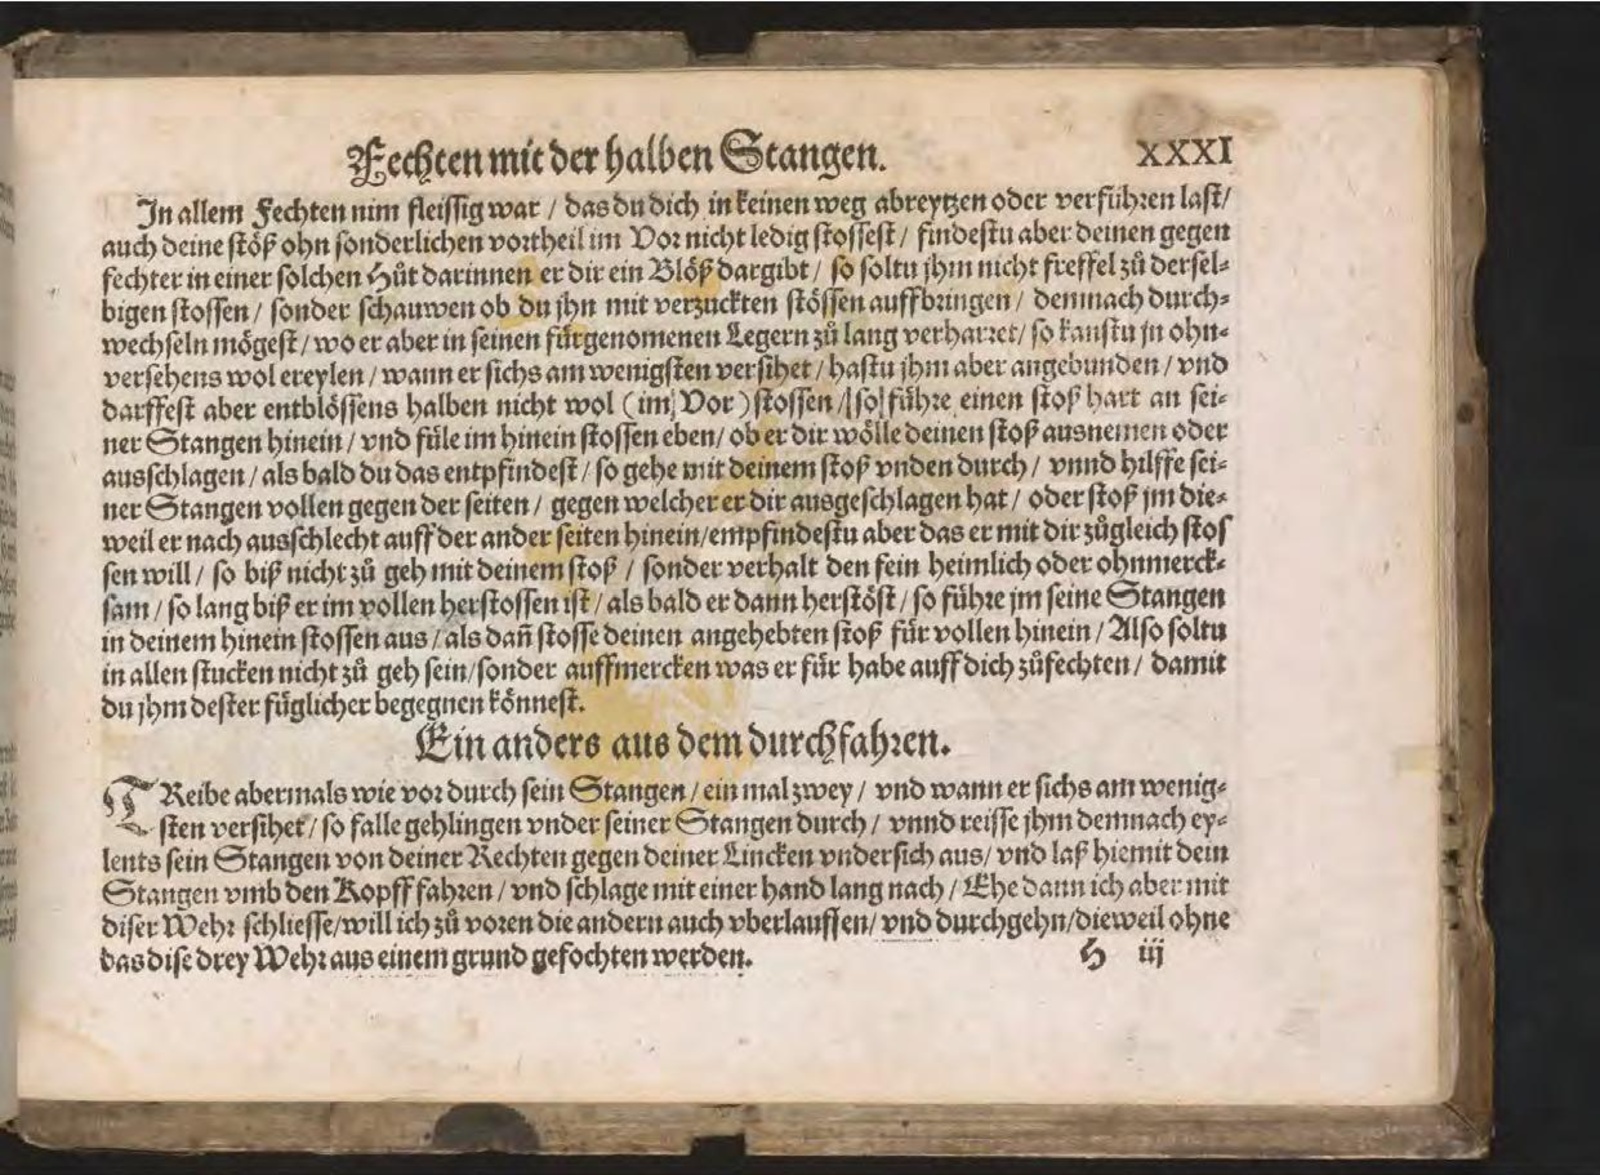 Fechten mit der halben Stangen. XXXI
In allem Fechten nim fleissig war / das du dich in keinen weg abreytzen oder verführen last /
auch deine stöß ohn sonderlichen vortheil im Vor nicht ledig stossest / findestu aber deinen gegen
fechter in einer solchen Hůt darinnen er dir ein Blöß dargibt / so soltu jhm nicht freffel zů dersel-
bigen stossen / sonder schauwen ob du jhn mit verzuckten stössen auffbringen / demnach durch-
wechseln mögest / wo er aber in seinen fürgenomenen Legern zů lang verharret / so kanstu jn ohn-
versehens wol ereylen / wann er sichs am wenigsten versihet / hastu jhm aber angebunden / vnd
darffest aber entblössens halben nicht wol (im Vor) stossen / so führe einen stoß hart an sei-
ner Stangen hinein / vnd füle im hinein stossen eben / ob er dir wölle deinen stoß ausnemen oder
ausschlagen / als bald du das entpfindest / so gehe mit deinem stoß vnden durch / vnnd hilffe sei-
ner Stangen vollen gegen der seiten / gegen welcher er dir ausgeschlagen hat / oder stoß jm die-
weil er nach ausschlecht auff der ander seiten hinein / empfindestu aber das er mit dir zůgleich stos
sen will / so biß nicht zů geh mit deinem stoß / sonder verhalt den fein heimlich oder ohnmerck-
sam / so lang biß er im vollen herstossen ist / als bald er dann herstöst / so führe jm seine Stangen
in deinem hinein stossen aus / als dañ stosse deinen angehebten stoß für vollen hinein / Also soltu
in allen stucken nicht zů geh sein / sonder auffmercken was er für habe auff dich zůfechten / damit
du jhm dester füglicher begegnen könnest.
Ein anders aus dem durchfahren.
TReibe abermals wie vor durch sein Stangen / ein mal zwey / vnd wann er sichs am wenig-
sten versihet / so falle gehlingen vnder seiner Stangen durch / vnnd reisse jhm demnach ey-
lents sein Stangen von deiner Rechten gegen deiner Lincken vndersich aus / vnd laß hiemit dein
Stangen vmb den Kopff fahren / vnd schlage mit einer hand lang nach / Ehe dann ich aber mit
diser Wehr schliesse / will ich zů voren die andern auch vberlauffen / vnd durchgehn / dieweil ohne
das dise drey Wehr aus einem grund gefochten werden. H iij